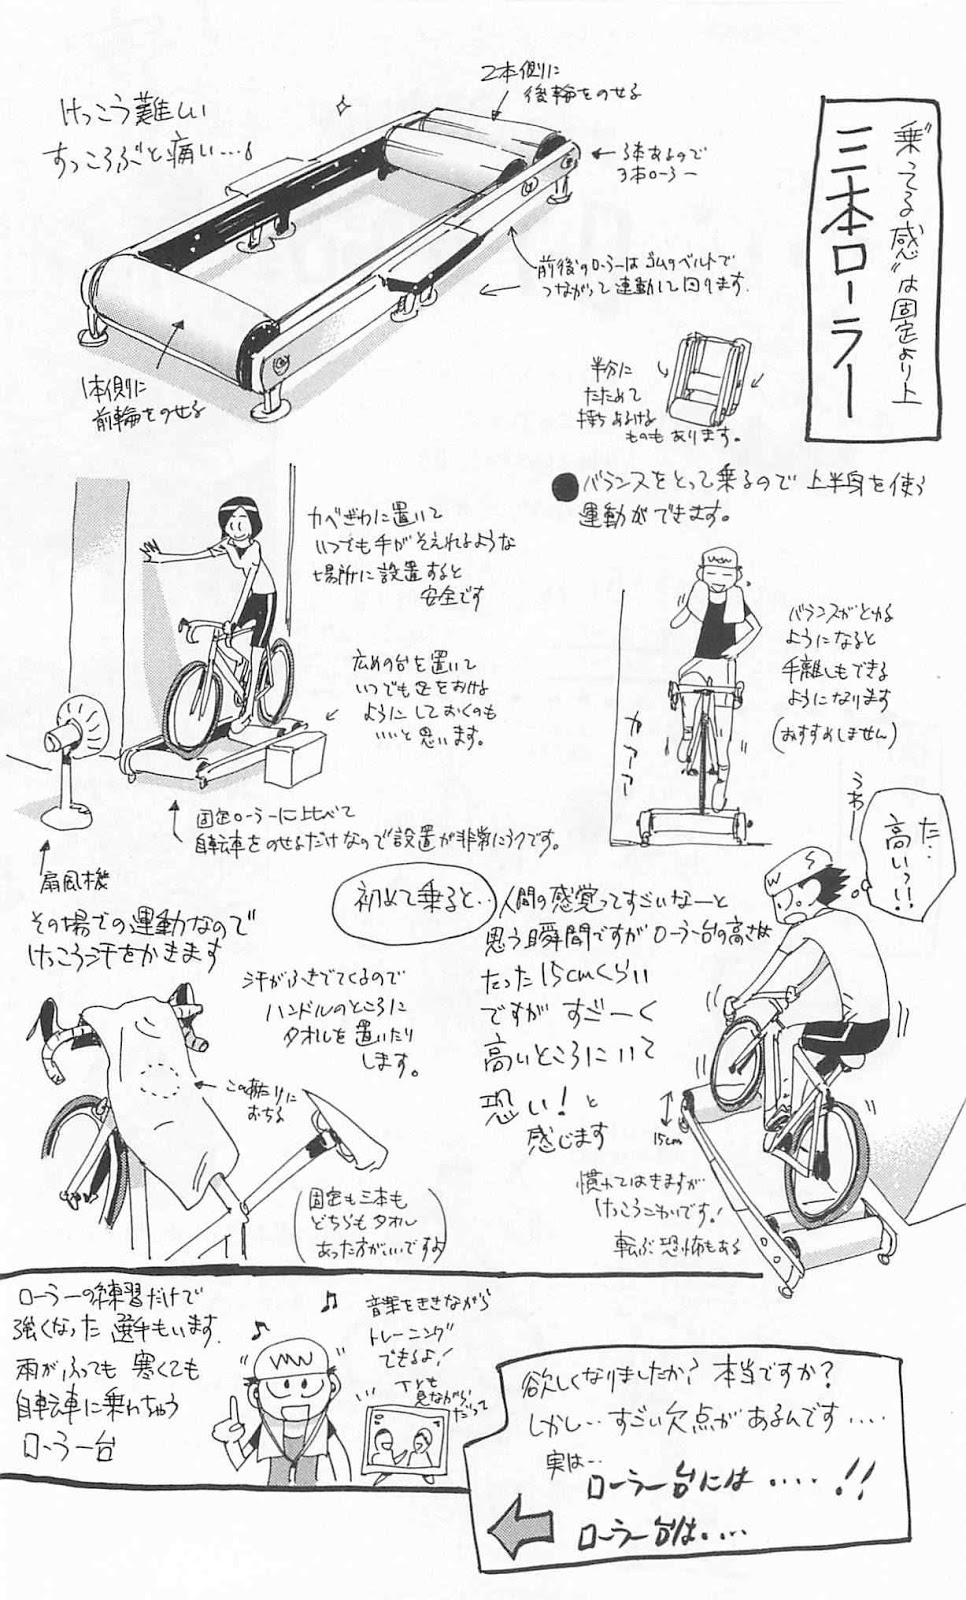 “乗ってる感”は固定より上
三本ローラー
けっこう難しい
すっころぶと痛い…。
2本側に
後輪をのせる
3本あるので
3本ローラー
前後のローラーはゴムのベルトで
つながって連動して回ります。
1本側に
前輪をのせる
半分に
たためて
持ちあるける
ものもあります。
●バランスをとって乗るので上半身を使う
運動ができます。
カベぎわに置いて
いつでも手がそえれるような
場所に設置すると
安全です
広めの台を置いて
いつでも足をおける
ようにしておくのも
いいと思います。
バランスがとれる
ようになると
手離しもできる
ようになります
(おすすめしません)
カアアア
固定ローラーに比べて
自転車をのせるだけなので設置が非常にラクです。
扇風機
うわー
た…
高いっ!!
その場での運動なので
けっこう汗をかきます
汗がふきでてくるので
ハンドルのところに
タオルを置いたり
します。
この辺りに
おちる
(固定も三本も
どちらもタオル
あった方がいいですよ)
初めて乗ると…
人間の感覚ってすごいなーと
思う瞬間ですがローラー台の高さは
たった15cmくらい
ですがすごーく
高いところにいて
恐い!と
感じます
15cm
慣れてはきますが
けっこうこわいです!
転ぶ恐怖もある
ローラーの練習だけで
強くなった選手もいます。
雨がふっても寒くても
自転車に乗れちゃう
ローラー台
音楽をききながら
トレーニング
できるよ!
TVも
見ながら
だって
欲しくなりましたか?本当ですか?
しかし…すごい欠点があるんです....
実は…
ローラー台には....!!
ローラー台は....